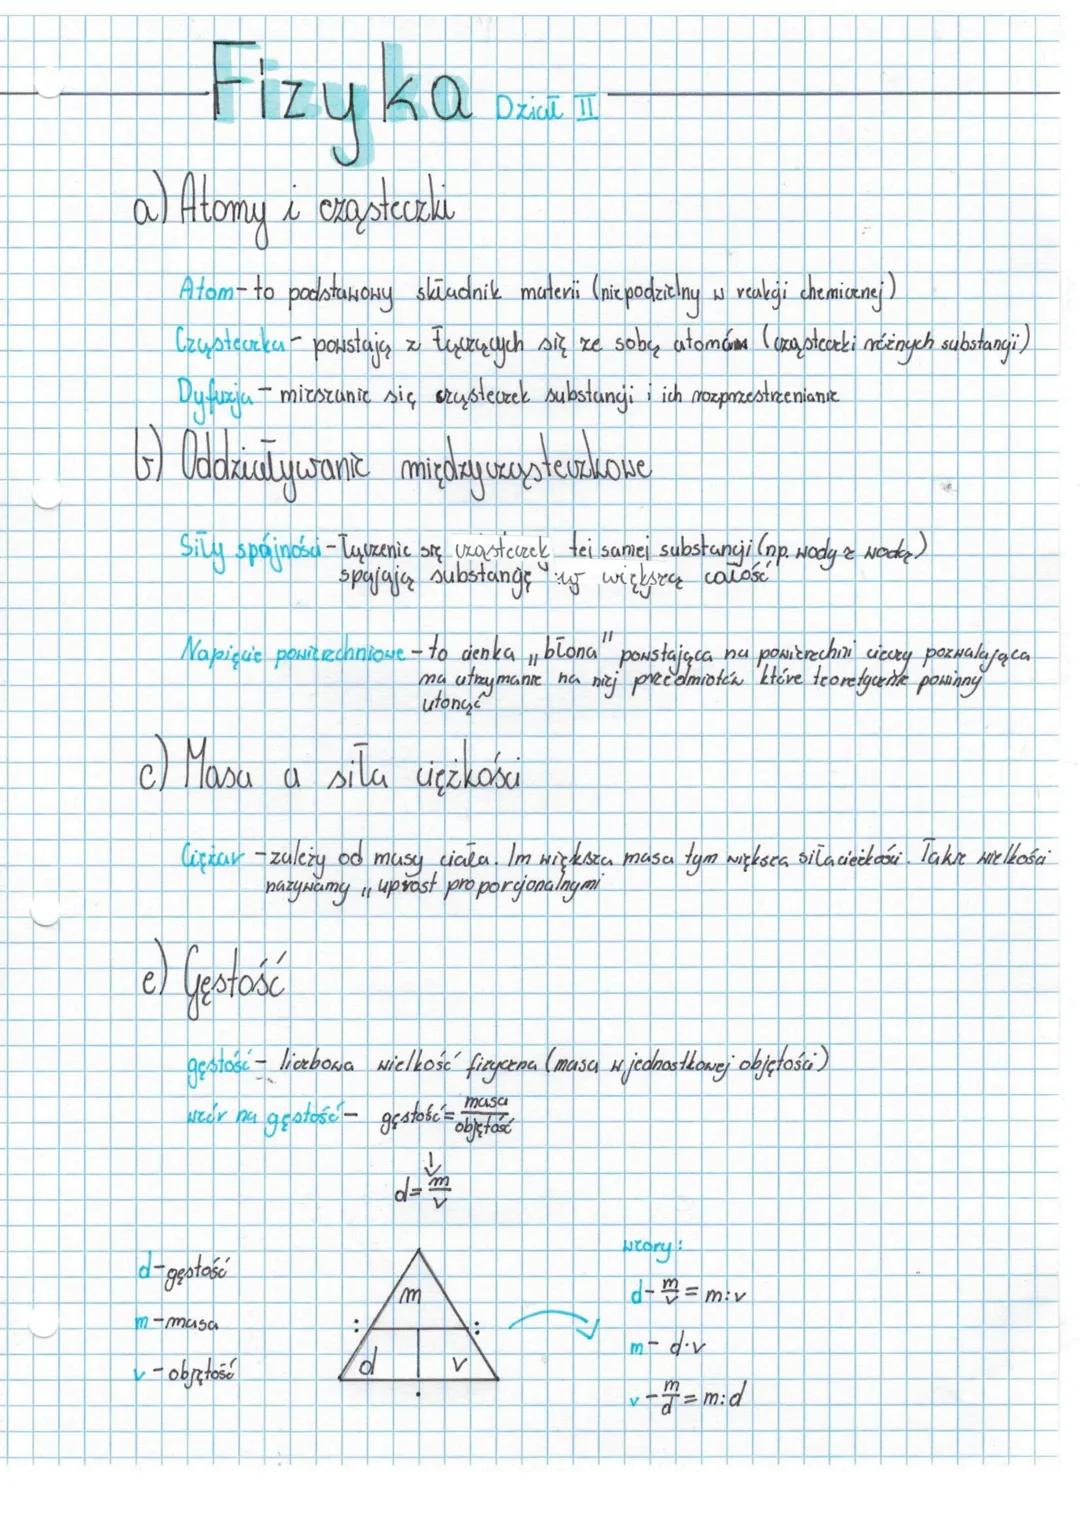 Fizyka Dział II
a) Atomy i cząsteczki
Atom - to podstawowy składnik materii (niepodzielny w reakcji chemicznej)
Cząsteczka - powstają z łączących się ze sobą atomów (cząsteczki różnych substancji)
Dyfuzja - mieszanie się cząsteczek substancji i ich rozprzestrzenianie
b) Oddziaływanie międzycząsteczkowe
Siły spójności - Łączenie się cząsteczek tej samej substancji (np. wody z wodą)
spajają substancję w większą całość
Napięcie powierzchniowe - to cienka „błona" powstająca na powierzchni cieczy pozwalająca
na utrzymanie na niej przedmiotów które teoretycznie powinny
utonąć
c) Masa a siła ciężkości
Ciężar - zależy od masy ciała. Im większa masa tym większa siła ciężkości. Takie wielkości
nazywamy „uprost proporcjonalnymi
e) Gęstość
gęstość - liczbowa wielkość fizyczna (masa w jednostkowej objętości)
wzór na gęstość - gęstość = masa/objętość
↓
d = m/v
wzory:
d - gęstość
m
d - m/v = m:v
m - masa
: :
m - d·v
v - objętość
d v
·
v - m/d = m:d